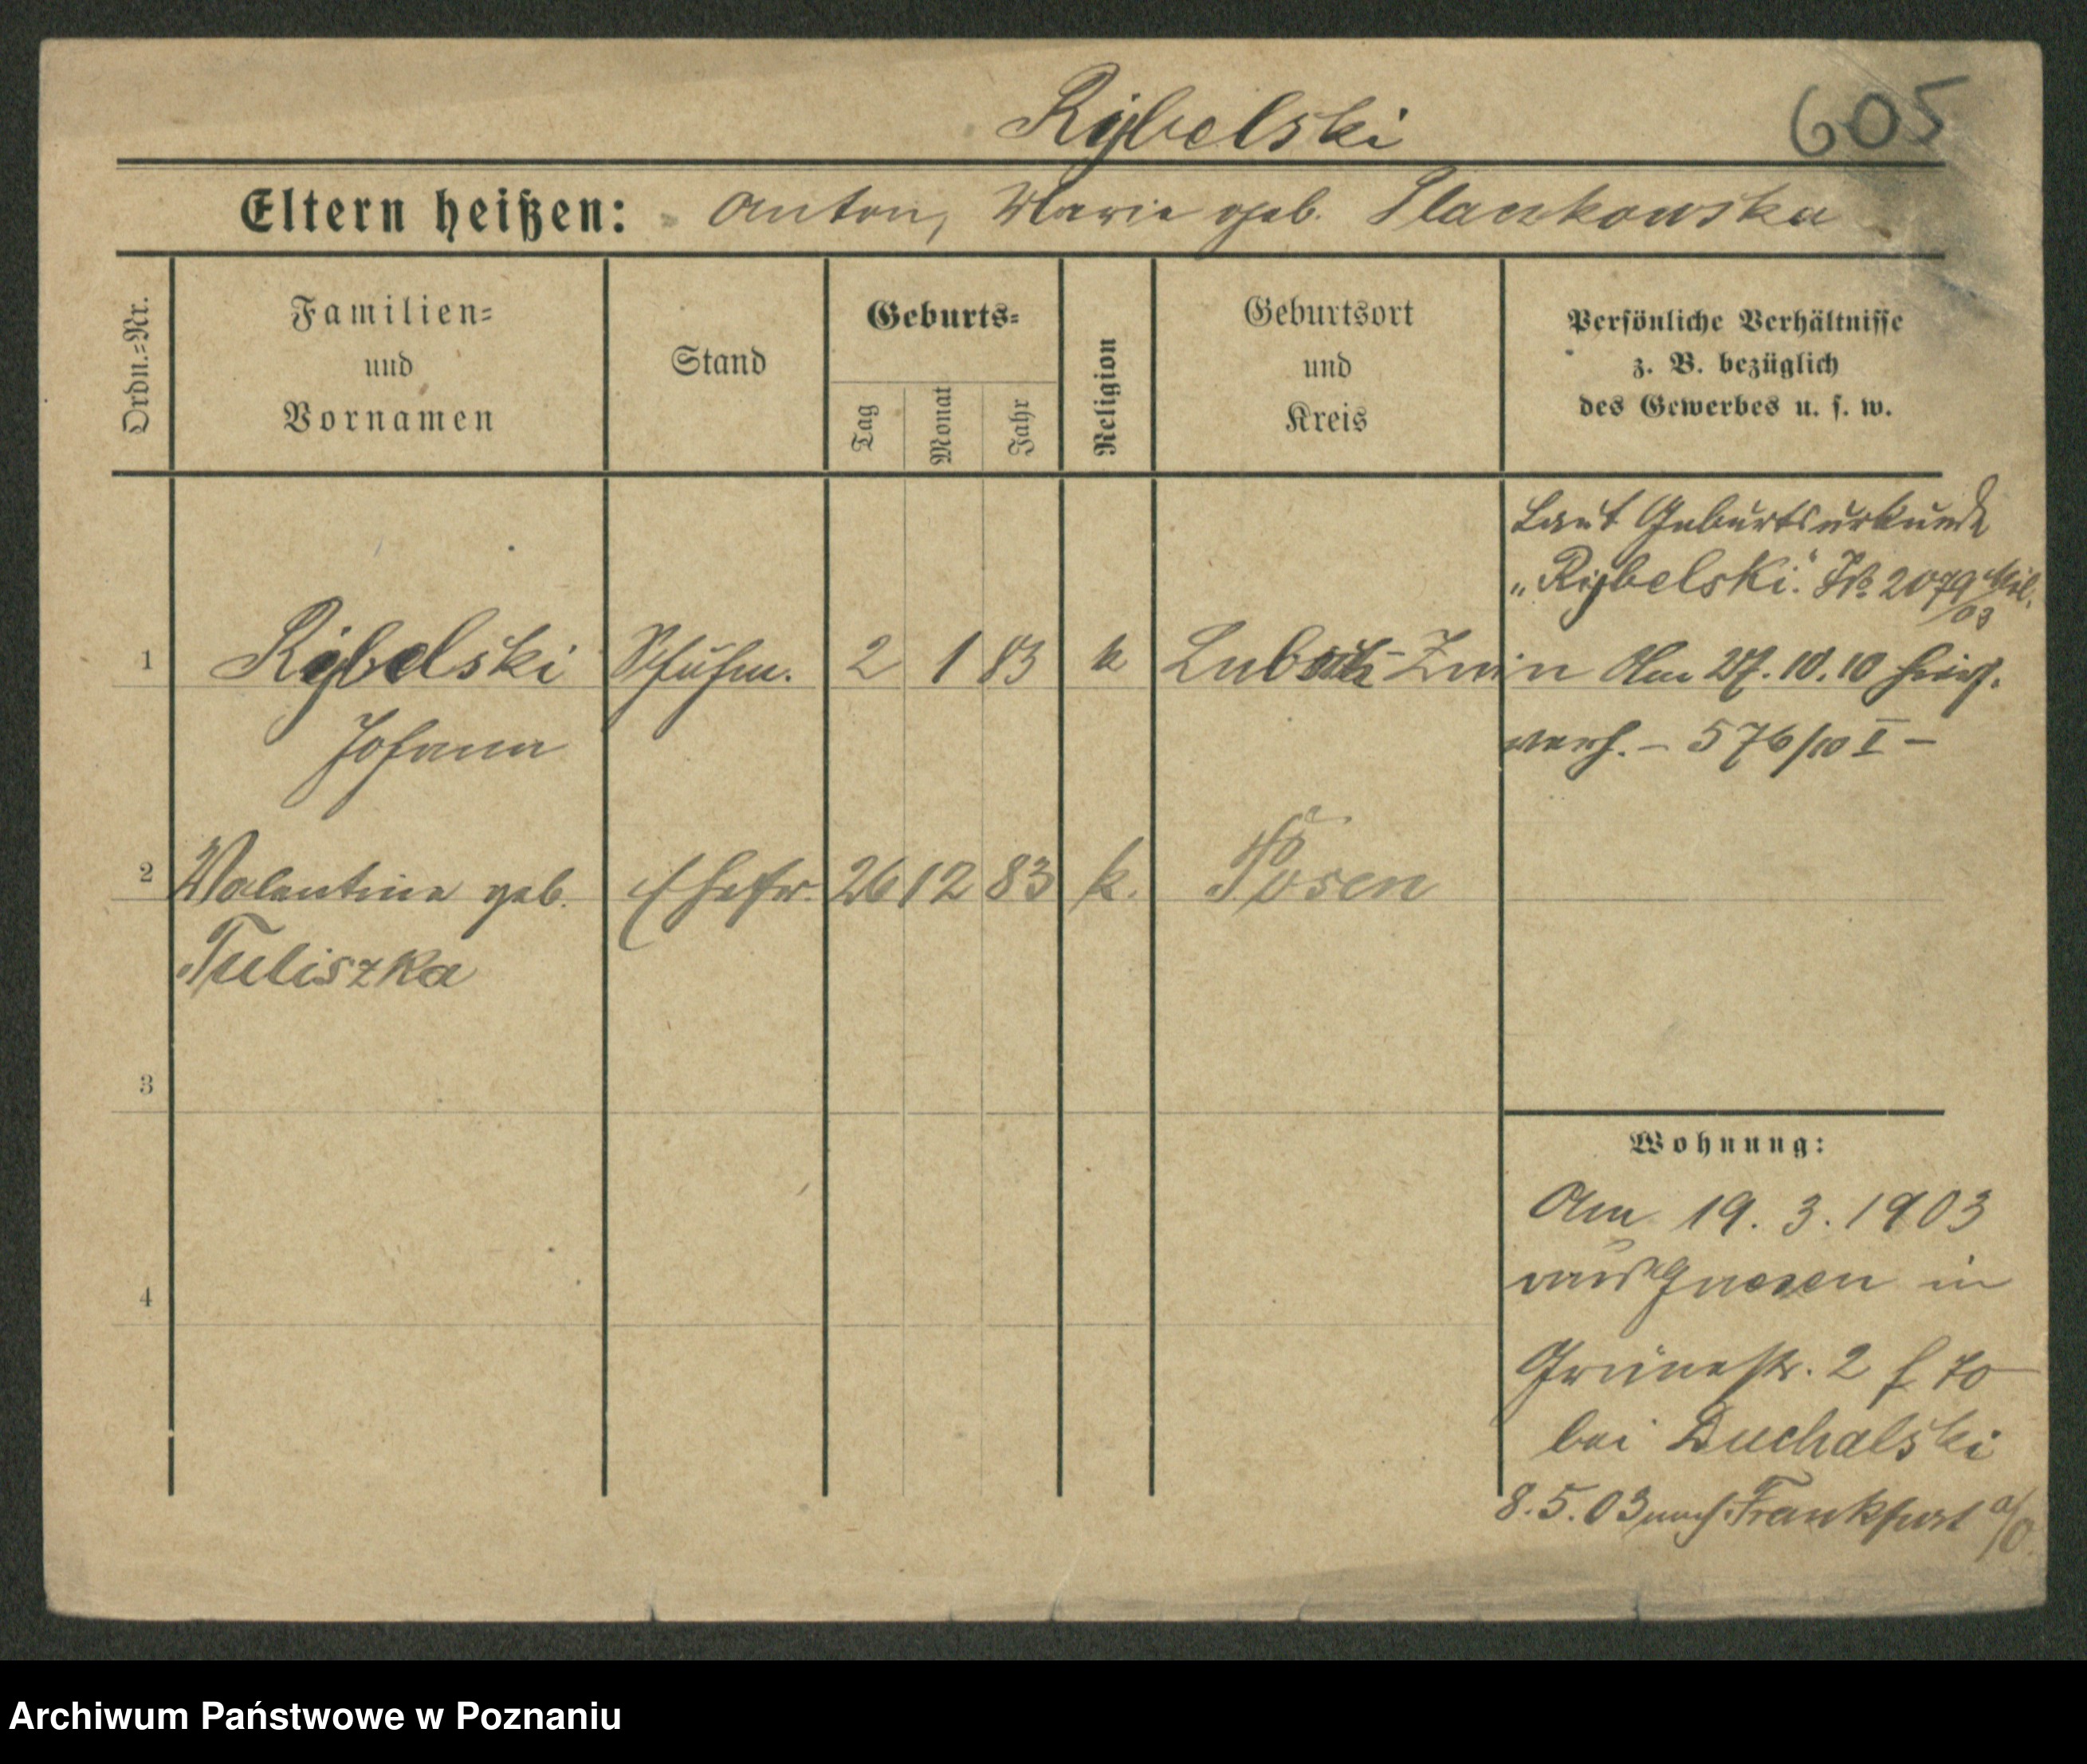 Rybelski 605
Eltern heißen: Anton, Marie geb. Slankowska
Ordn.=Nr.
Familien=
und
Vornamen
Stand
Geburts=
Tag
Monat
Jahr
Religion
Geburtsort
und
Kreis
Persönliche Verhältnisse
z. B. bezüglich
des Gewerbes u. s. w.
Laut Geburtsurkunde
„Rybelski." No 2079 Mil.
/03
1 Rybelski Schuhm. 2 1 83 k Znin Am 27. 10. 10 hier
Johann
verh. – 576/10 I –
2 Valentine geb. Ehefr. 26 12 83 k. Posen
Tuliszka
3
4
Wohnung:
Am 19. 3. 1903
aus Gnesen in
Grünestr. 2
bei Duchalski
8. 5. 03 nach Frankfurt a/O.
Archiwum Państwowe w Poznaniu